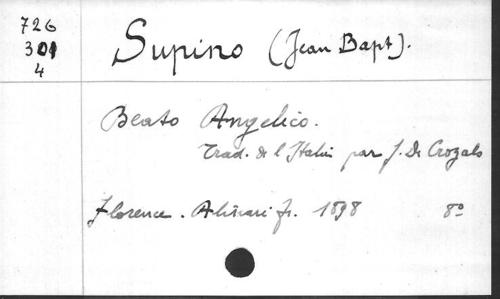 726
301
4
Supino (Jean Bapt).
Beato Angelico.
Trad. de l'Italien par J. De Crozals
Florence. Alinari fr. 1898 8°